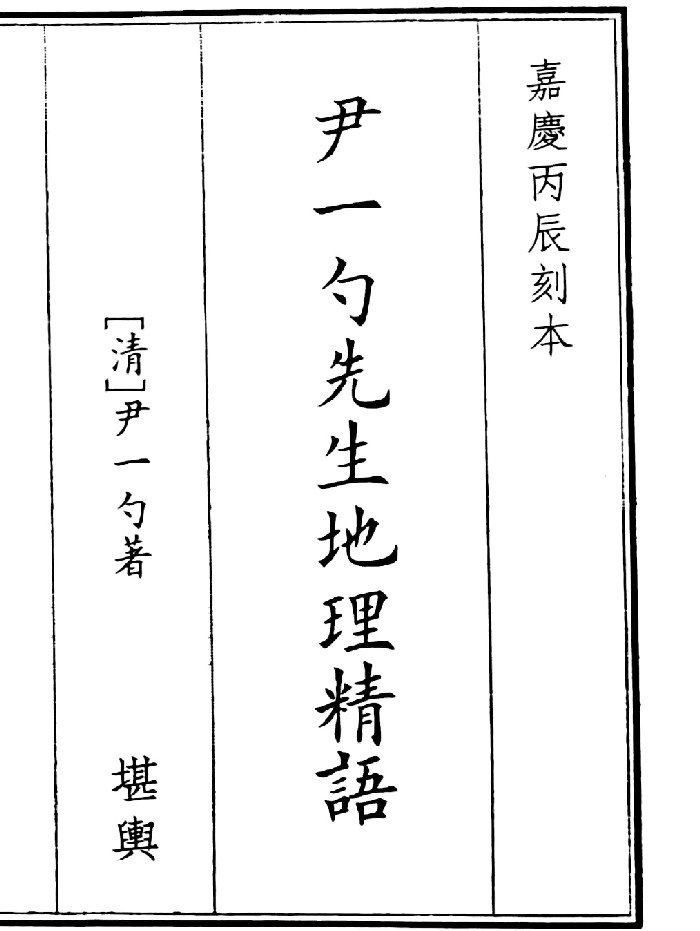 嘉慶丙辰刻本
尹一勺先生地理精語
[清]尹一勺著
堪輿